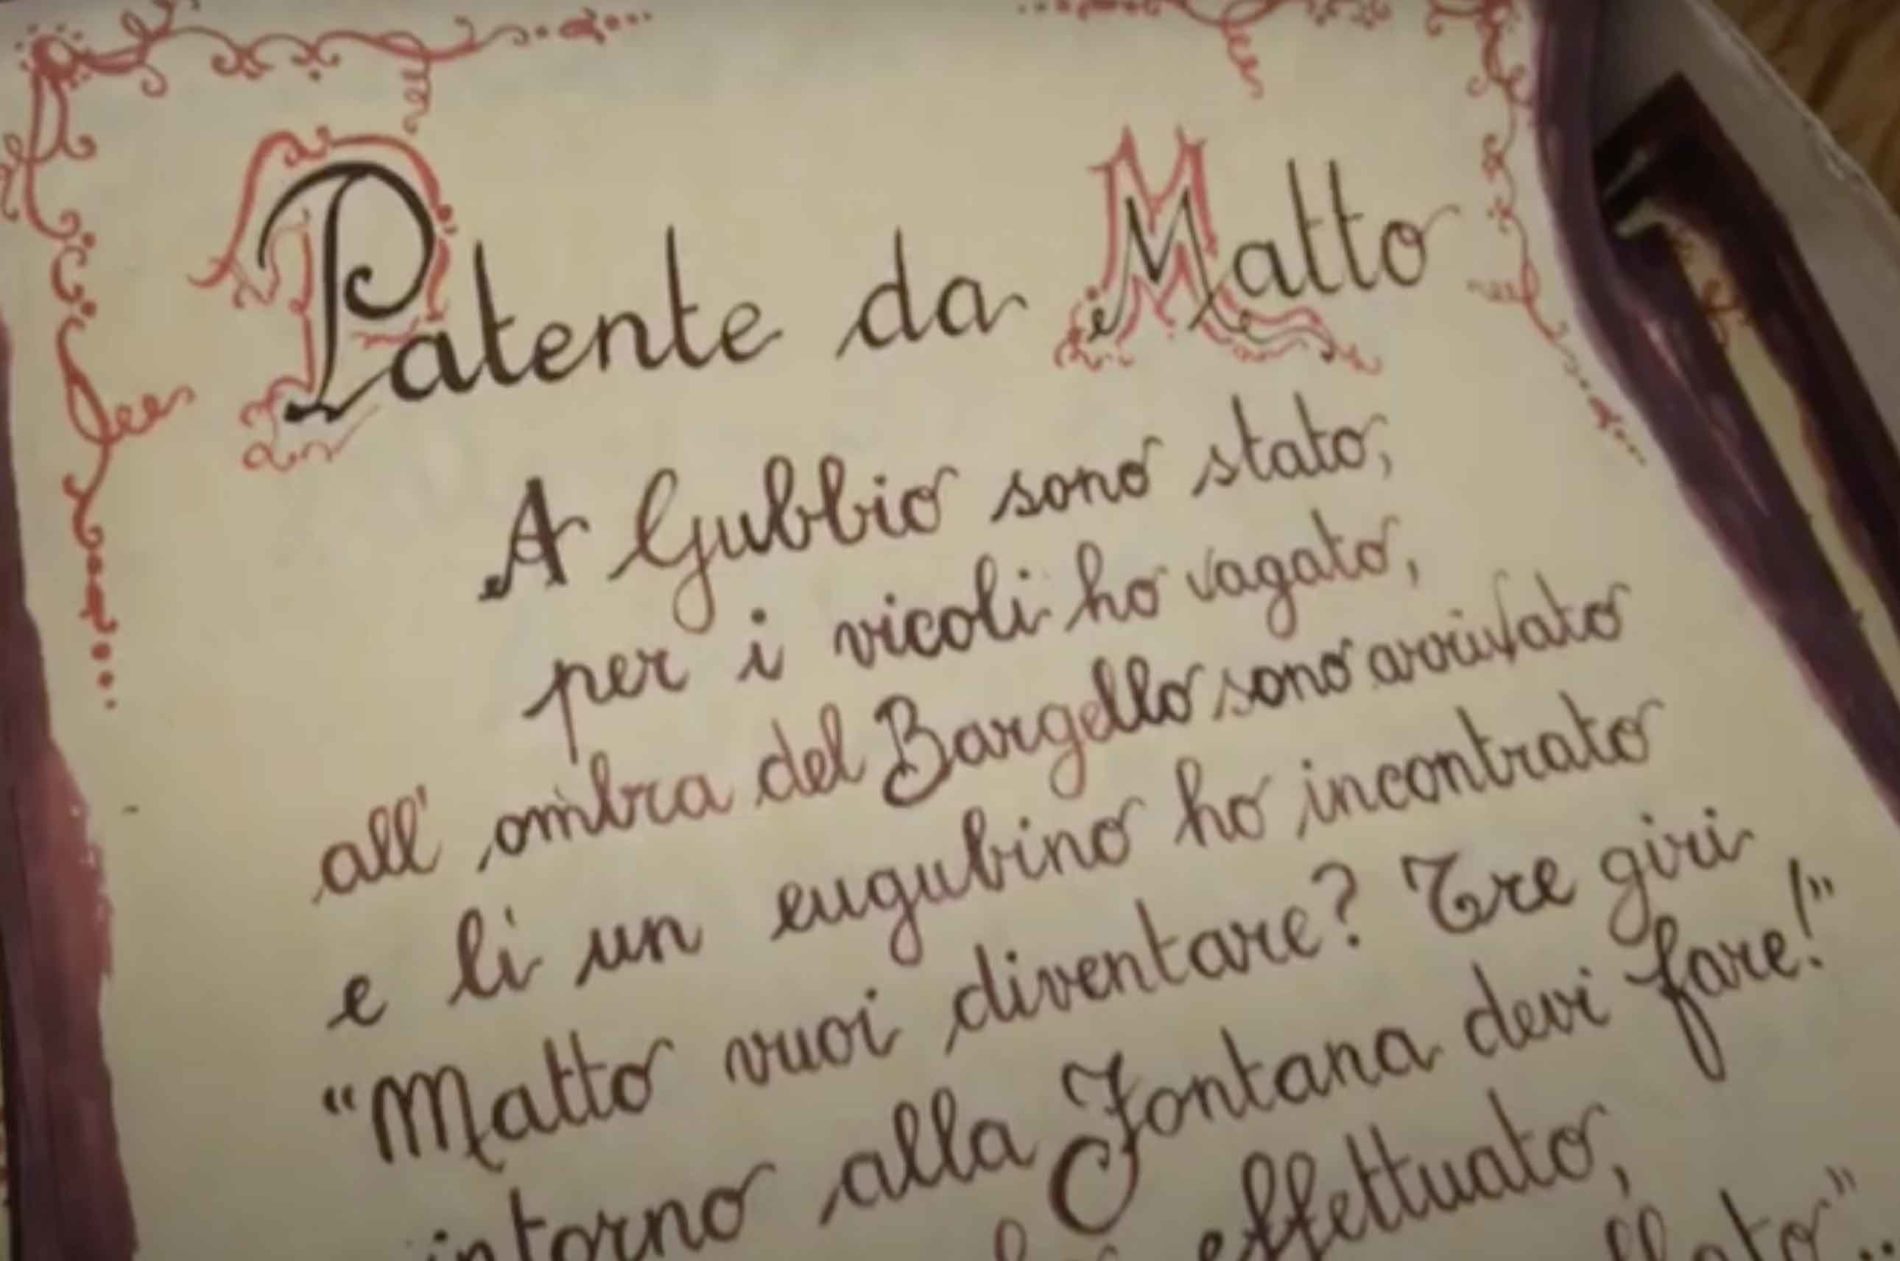 Patente da Matto
A Gubbio sono stato,
per i vicoli ho vagato,
all' ombra del Bargello sono arrivato
e li un eugubino ho incontrato
"Matto vuoi diventare? Tre giri
intorno alla Fontana devi fare!"
effettuato,